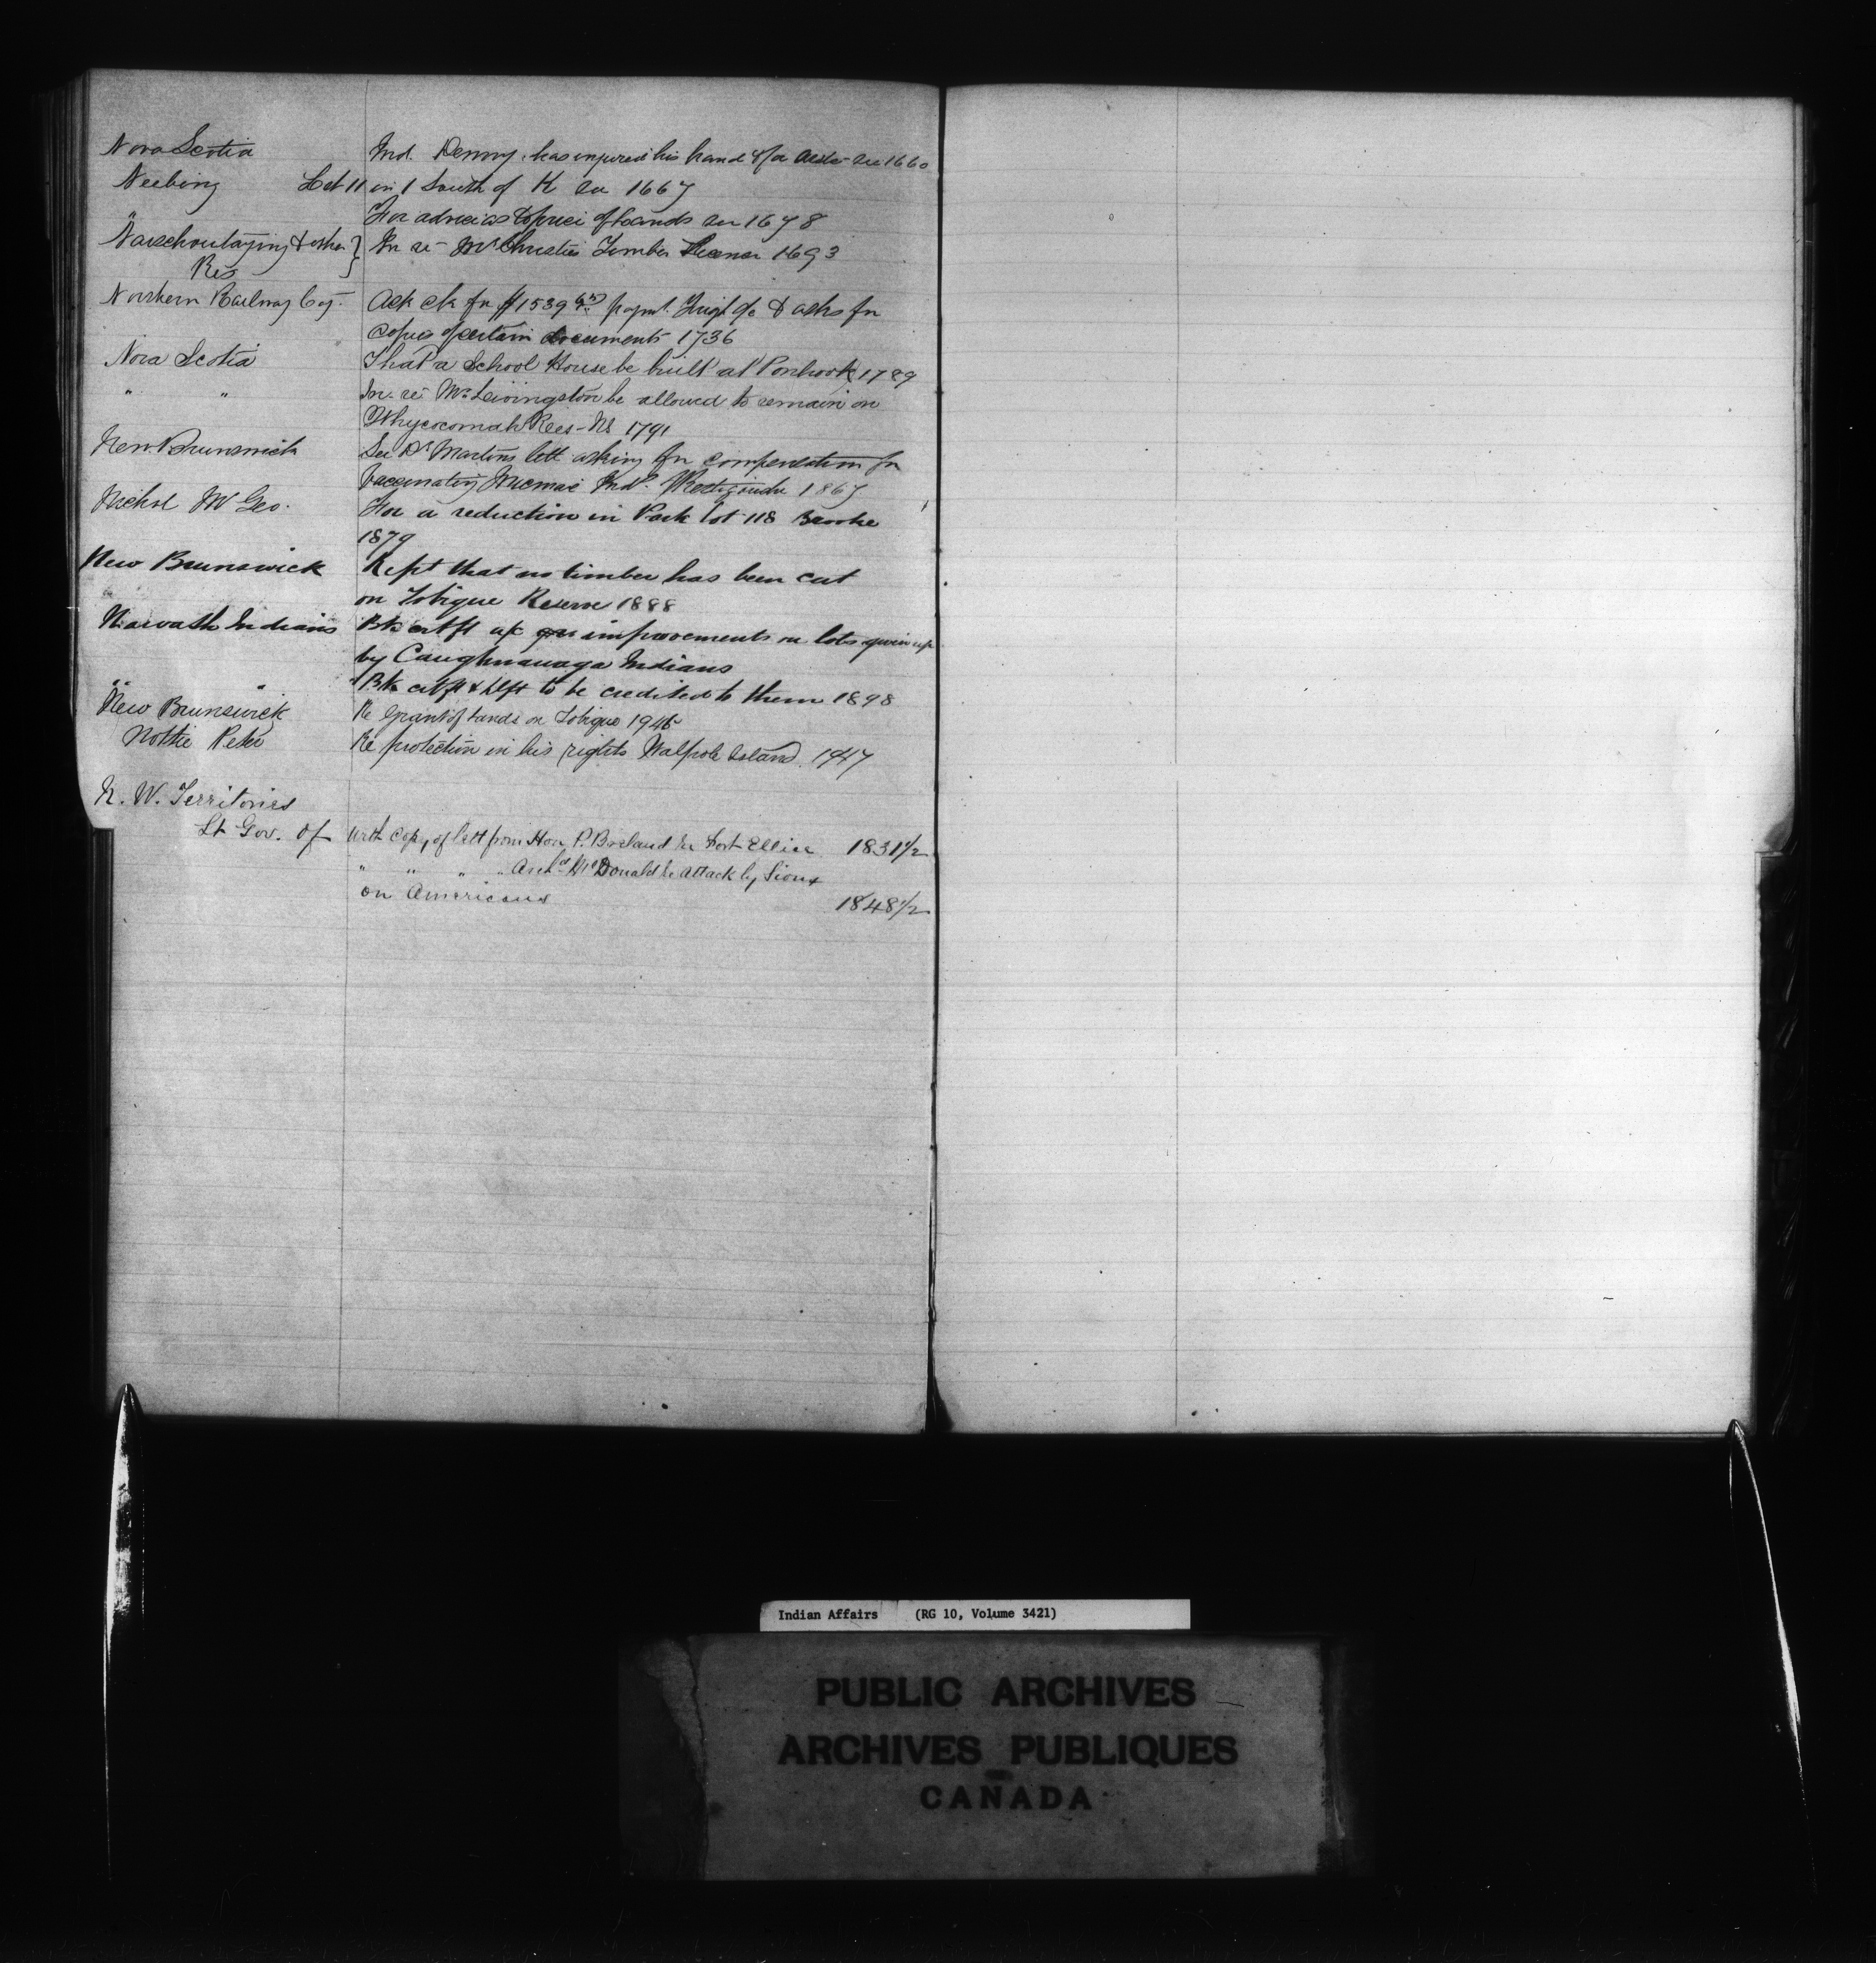 Nova Scotia Ind. Denny has injured his hand & for see 1660
Neebing Lot 11 in 1 South of K see 1667
" For advice as to price of lands see 1678
Naischoutaying & other } In re Mr Christie's Timber License 1693
Res
Northern Railway Coy. Ack ck for $1539 paymt. Frigt &c & asks for
copies of certain documents 1736
Nova Scotia That a School House be built at Ponhook 1789
" " In re Mr Livingston be allowed to remain on
Whycocomah Res - NS 1791
New Brunswick See Dr Martins lett asking for compensation for
vaccinating Micmac Inds. Restigouche 1867
Nichol Wm Geo. For a reduction in Park lot 118 Brooke
1879
New Brunswick Rept that no timber has been cut
on Tobique Reserve 1888
Indians Bk certft a/c improvements on lots given up
by Caughnawaga Indians
" " Bk certft & to be credited to them 1898
New Brunswick Re Grant of lands on Tobique 1945
Nottie Peter Re protection in his rights Walpole Island. 1947
N. W. Territories
Lt Gov. of with copy of lett from Hon P. Breland re Fort Ellice 1831½
" " " " Archd McDonald re Attack by Sioux
on Americans 1848½
Indian Affairs (RG 10, Volume 3421)
PUBLIC ARCHIVES
ARCHIVES PUBLIQUES
CANADA